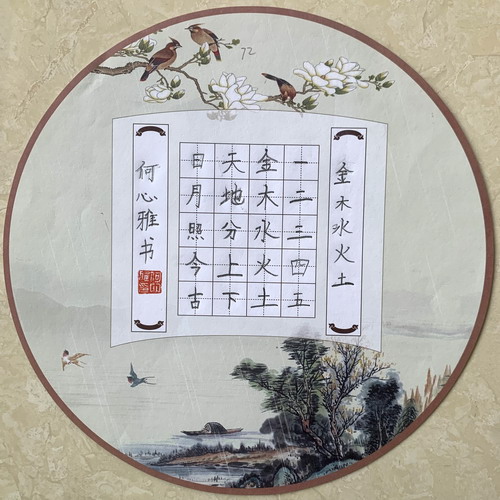 72
金木水火土
一二三四五
金木水火土
天地分上下
日月照今古
何心雅书